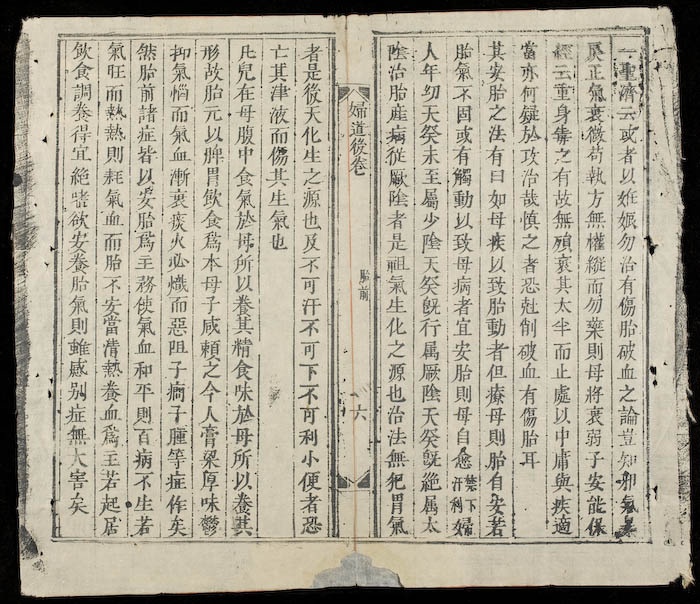 一聖濟云或者以姙娠勿治有傷胎破血之論豈知邪氣暴
戾正氣衰微苟執方無權縱而勿藥則母將衰弱子安能保
經云重身毒之有故無殞衰其太半而止處以中庸與疾適
當亦何疑於攻治哉慎之者恐尅削破血有傷胎耳
其安胎之法有曰如母疾以致胎動者但療母則胎自安若
胎氣不固或有觸動以致母病者宜安胎則母自愈禁下汗利婦
人年幼天癸未至屬少陰天癸旣行属厥陰天癸旣絶属太
陰治胎産病從厥陰者是祖氣生化之源也治法無犯胃氣
婦道後卷
胎前
六
者是後天化生之源也及不可汗不可下不可利小便者恐
亡其津液而傷其生氣也
凡兒在母腹中食氣於母所以養其精食味於母所以養其
形故胎元以脾胃飲食爲本母子咸賴之今人膏梁厚味鬱
抑氣惱而氣血漸衰痰火必熾而惡阻子癎子腫等症作矣
然胎前諸症皆以安胎爲主務使氣血和平則百病不生若
氣旺而熱熱則耗氣血而胎不安當清熱養血爲主若起居
飲食調養得宜絶嗜欲安養胎氣則雖感别症無大害矣